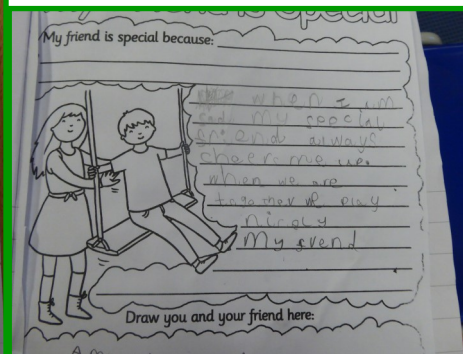 My friend is special because:
when I um
sad my speclal
friend always
cheers me up.
when we are
we play
nicely
My friend
Draw you and your friend here: